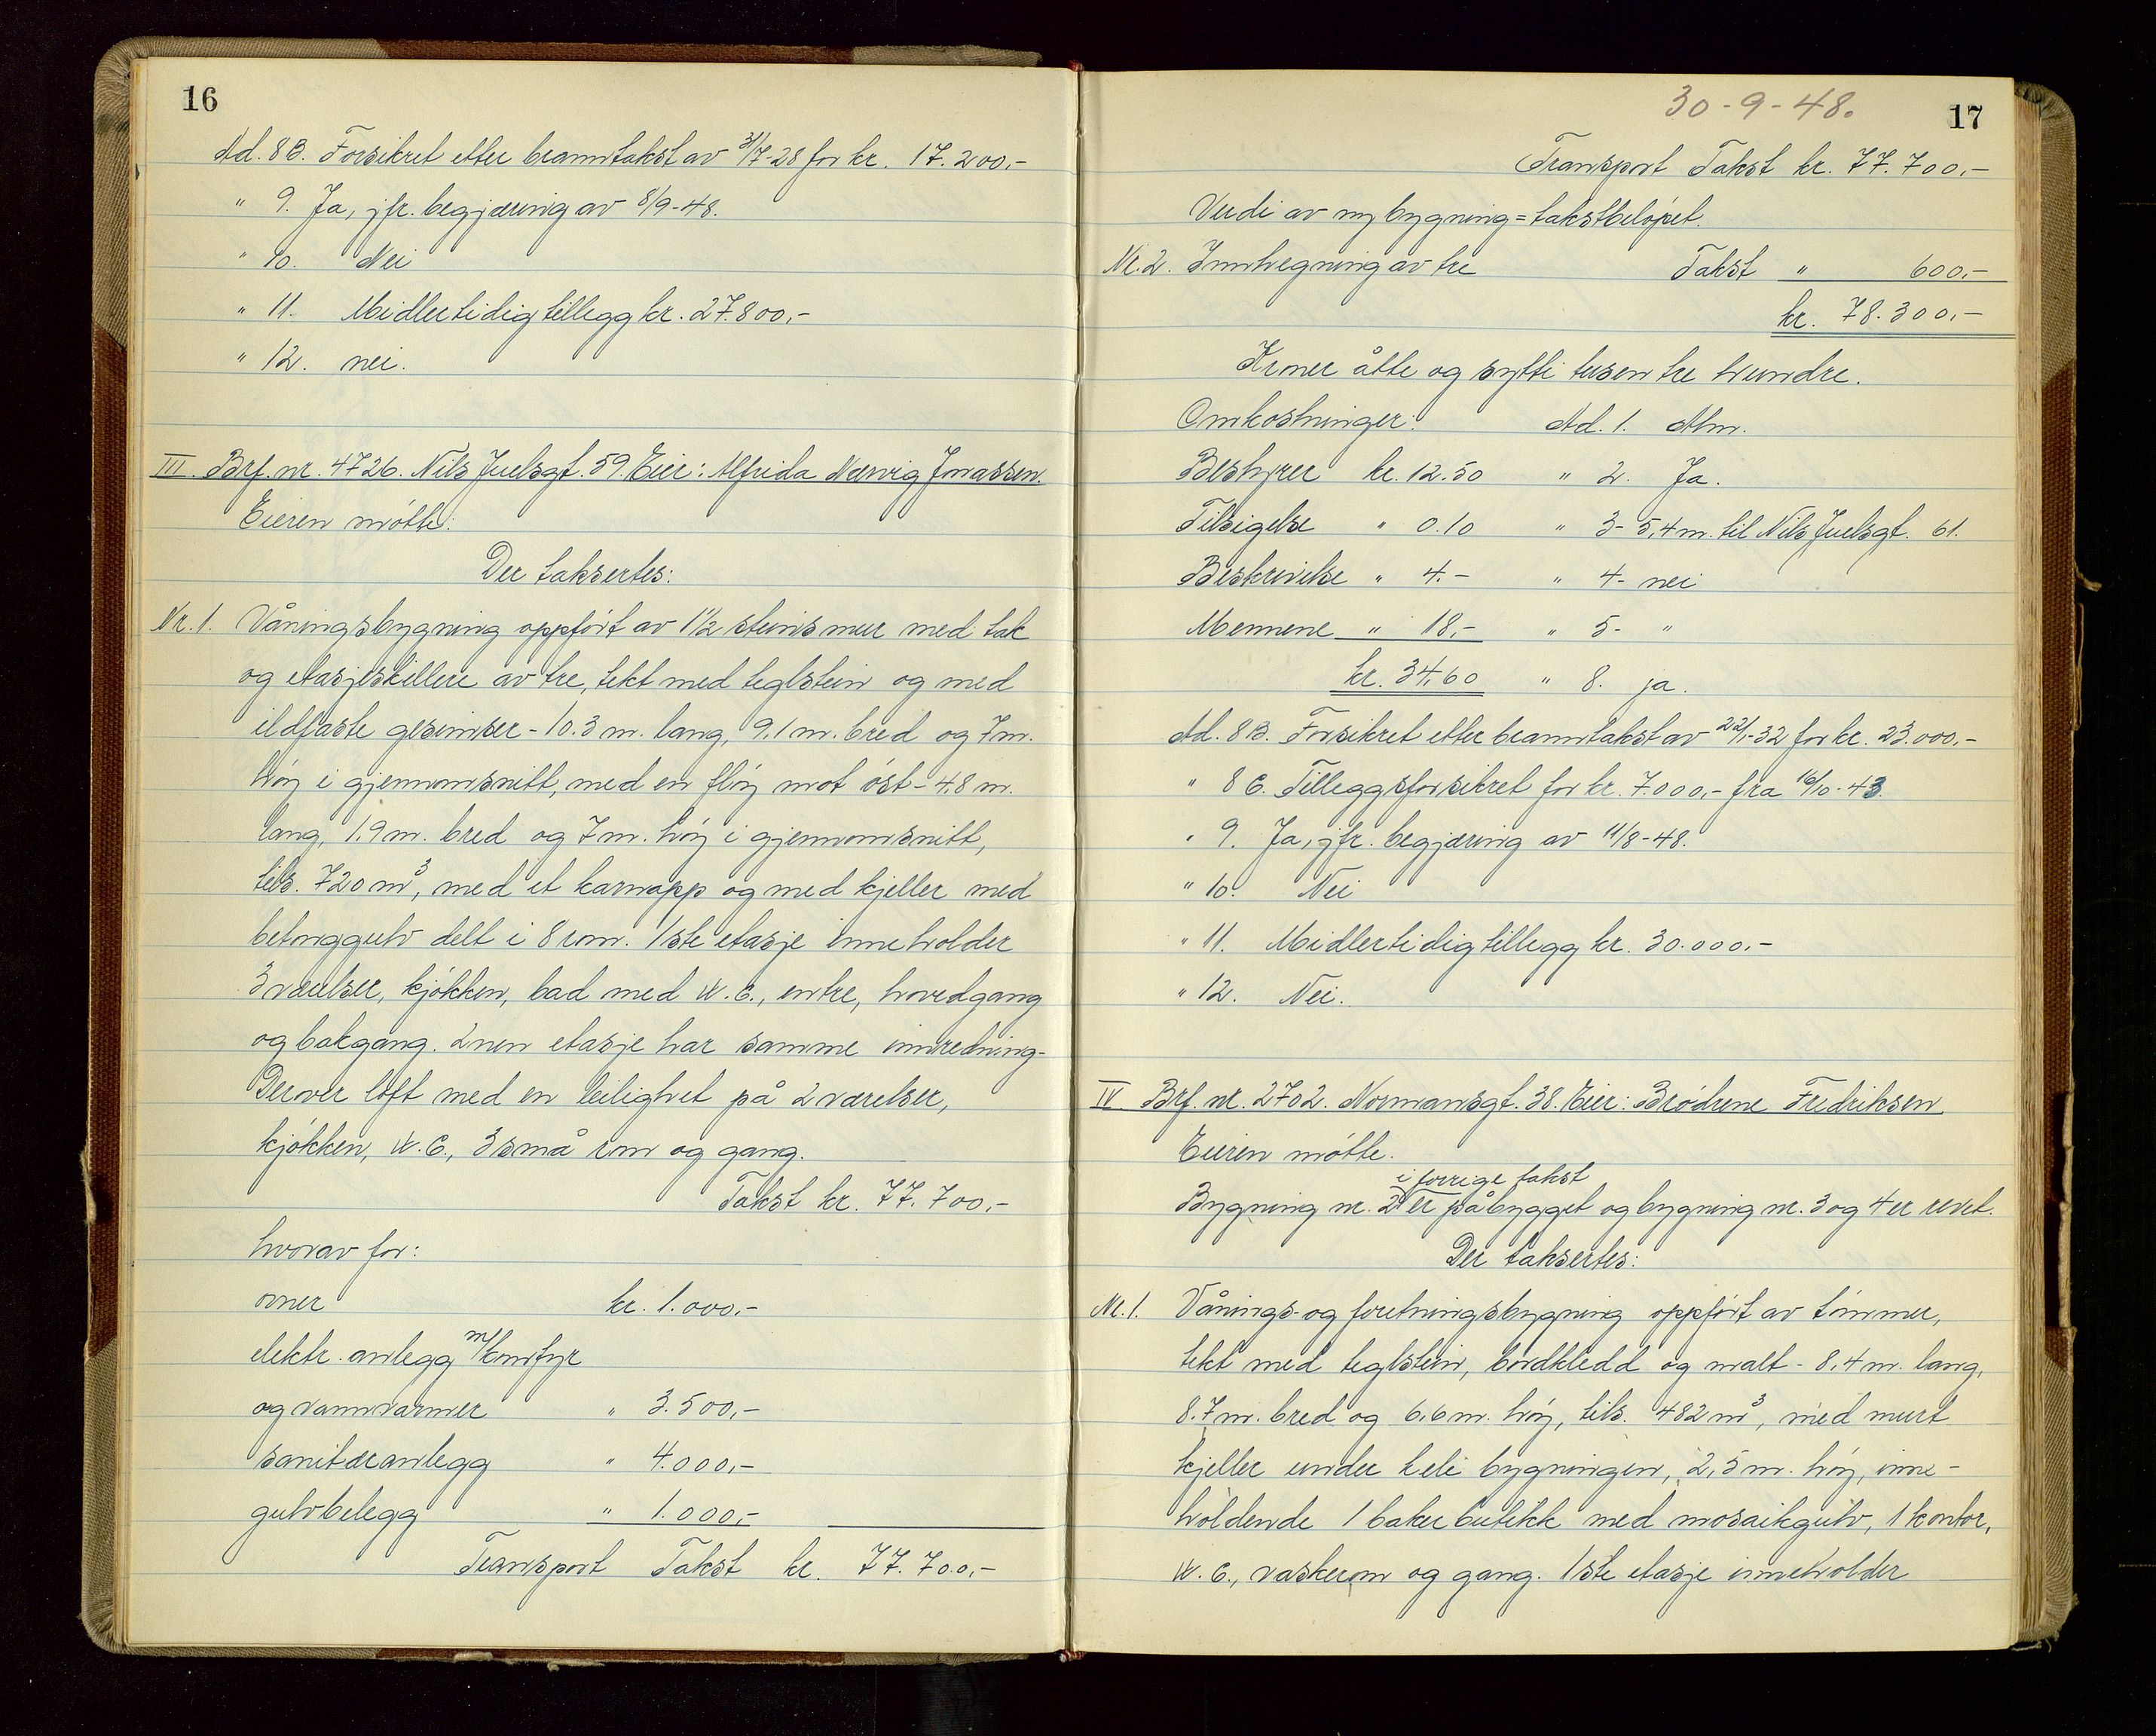 16
Ad. 8B. Forsikret etter branntakst av 31/7-28 for kr. 17.200,-
" 9. Ja, jfr. begjæring av 8/9-48.
" 10. Nei
" 11. Midlertidig tillegg kr. 27.800,-
" 12. nei.
III. Brf. nr. 4726. Nils Juelsgt. 59. Eier: Alfrida Nærvig Jonassen.
Eieren møtte:
Der taksertes:
Nr. 1. Våningsbygning oppført av 1½ steins mur med tak
og etasjeskillere av tre, tekt med teglstein og med
ildfaste gesimser - 10.3 m. lang, 9,1 m. bred og 7 m.
høy i gjennomsnitt, med en fløy mot øst - 4,8 m.
lang, 1,9 m. bred og 7 m. høy i gjennomsnitt,
tils. 720 m³, med et karnapp og med kjeller med
betonggulv delt i 8 rom. 1ste etasje inneholder
3 værelser, kjøkken, bad med W.C., entre, hovedgang
og bakgang. 2nen etasje har samme innredning-
Derover loft med en leilighet på 2 værelser,
kjøkken, W.C., 3 små rom og gang.
Takst kr. 77.700,-
hvorav for:
ovner kr. 1.000,-
elektr. anlegg m/komfyr
og vannvarmer " 3.500,-
sanitæranlegg " 4.000,-
gulvbelegg " 1.000,-
Transport Takst kr. 77.700,-
30-9-48.
17
Transport Takst kr. 77.700,-
Verdi av ny bygning = takstbeløpet.
Nr. 2. Innhegning av tre Takst " 600,-
kr. 78.300,-
Kroner åtte og sytti tusen tre hundre.
Omkostninger: Ad. 1. Alm.
Bestyrer kr. 12.50 " 2. Ja.
Tilsigelse " 0.10 " 3- 5,4 m. til Nils Juelsgt. 61.
Beskrivelse " 4.- " 4- nei
Mennene " 18,- " 5- "
kr. 34,60 " 8. ja.
Ad. 8B. Forsikret etter branntakst av 22/1-32 for kr. 23.000,-
" 8C. Tilleggsforsikret for kr. 7.000,- fra 16/10-43.
" 9. Ja, jfr. begjæring av 11/8-48.
" 10. Nei
" 11. Midlertidig tillegg kr. 30.000.-
" 12. Nei.
IV Brf. nr. 2702. Normannsgt. 38. Eier: Brødrene Fredriksen
Eieren møtte.
i forrige takst
Bygning nr. 2 er påbygget og bygning nr. 3 og 4 er revet.
Der taksertes:
Nr. 1. Vånings- og foretningsbygning oppført av tømmer,
tekt med teglstein, bordkledd og malt - 8,4 m. lang,
8.7 m. bred og 6,6 m. høy, tils. 482 m³, med murt
kjeller under hele bygningen, 2,5 m. høy, inne-
holdende 1 baker butikk med mosaikgulv, 1 kontor,
W.C., vaskerom og gang. 1ste etasje inneholder